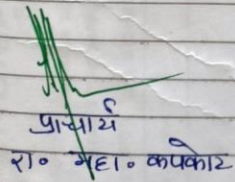 प्राचार्य
रा० महा० कपकोट